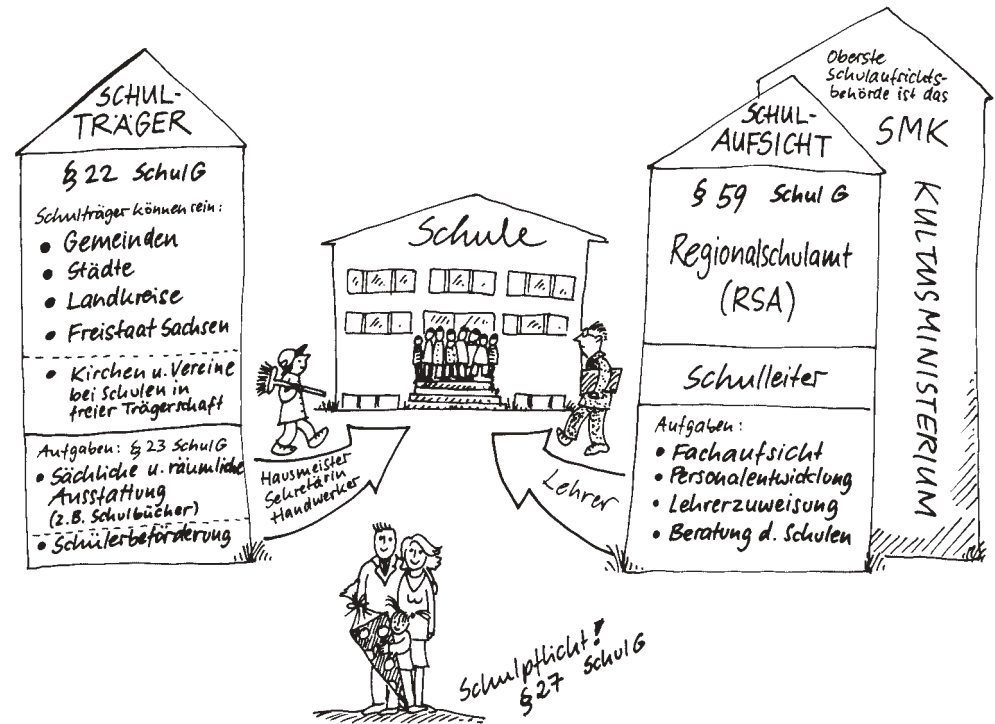 SCHUL-
TRÄGER
§ 22 SchulG
Schulträger können sein:
• Gemeinden
• Städte
• Landkreise
• Freistaat Sachsen
• Kirchen u. Vereine
bei Schulen in
freier Trägerschaft
Aufgaben: § 23 SchulG
• Sächliche u. räumliche
Ausstattung
(z.B. Schulbücher)
• Schülerbeförderung
Hausmeister
Sekretärin
Handwerker
Schule
Lehrer
Schulpflicht!
§ 27 SchulG
SCHUL-
AUFSICHT
§ 59 Schul G
Regionalschulamt
(RSA)
Schulleiter
Aufgaben:
• Fachaufsicht
• Personalentwicklung
• Lehrerzuweisung
• Beratung d. Schulen
Oberste
Schulaufsichts-
behörde ist das
SMK
KULTUSMINISTERIUM